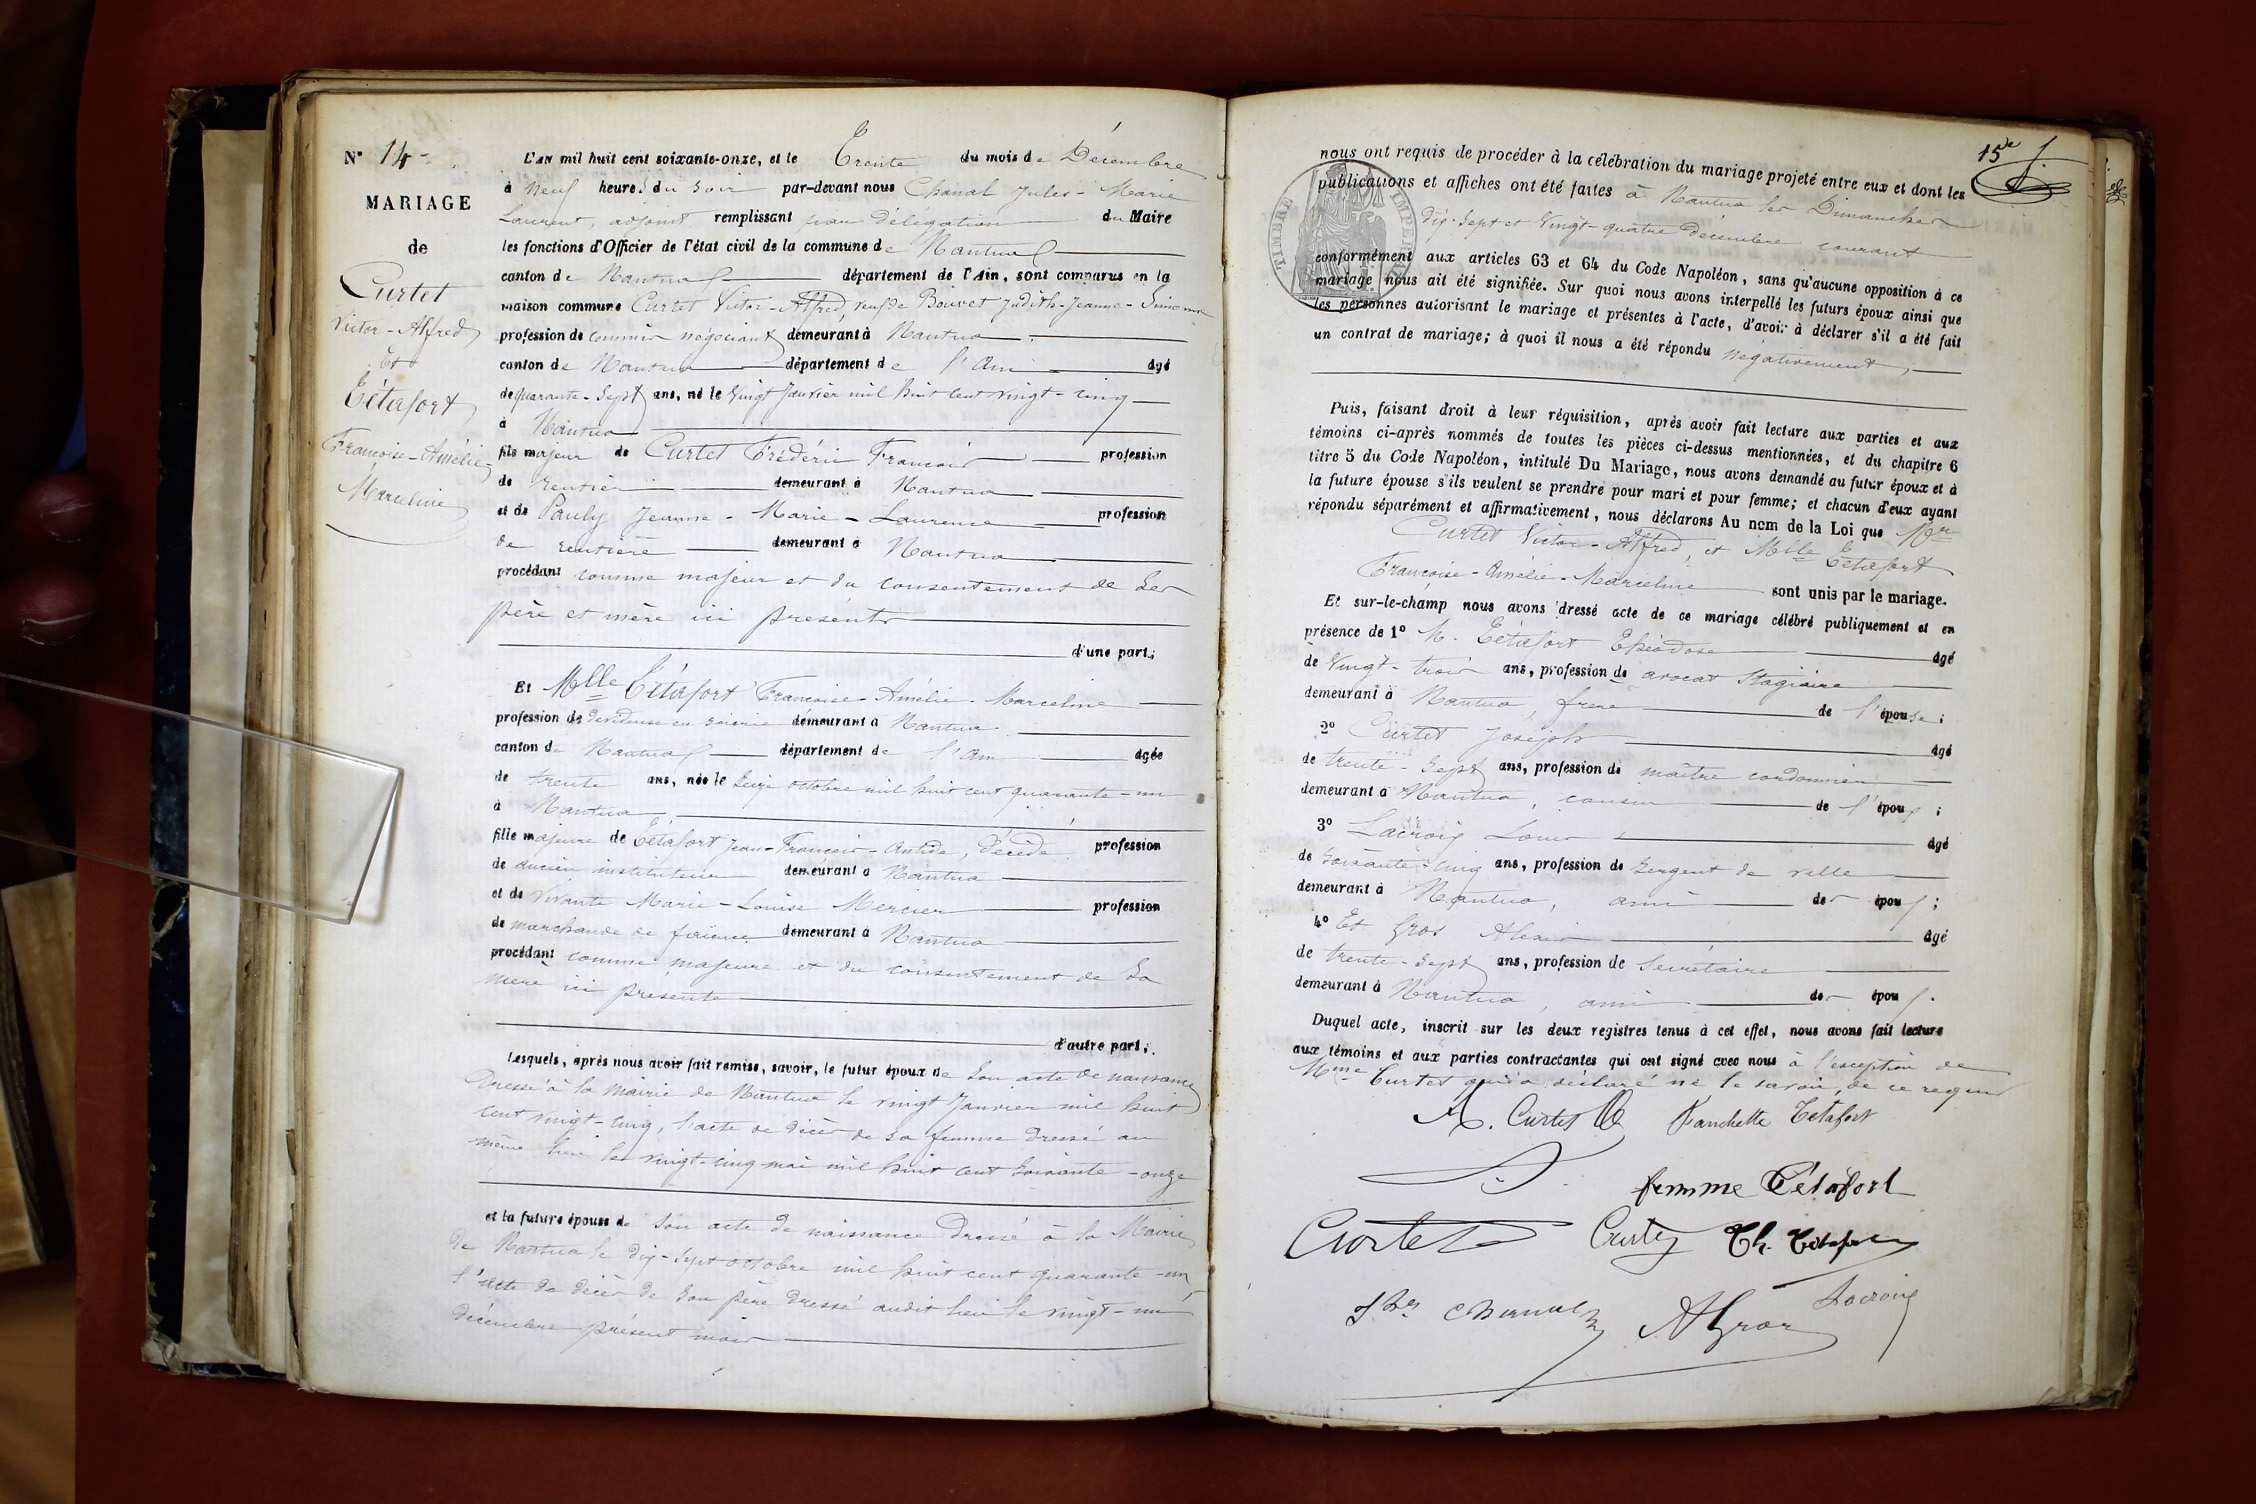 N° 14
MARIAGE
de
Curtet
Victor-Alfred
Et
Tétafort
Françoise-Amélie
Marceline
L'an mil huit cent soixante-onze, et le Trente du mois de Décembre
à neuf heures du soir par-devant nous Chanal Jules-Marie
Laurent, adjoint remplissant par délégation du Maire
les fonctions d'Officier de l'état civil de la commune de Nantua
canton de Nantua département de l'Ain, sont comparus en la
maison commune Curtet Victor-Alfred, veuf de Bouvet Judith-Jeanne-
profession de commis négociant demeurant à Nantua
canton de Nantua département de l'Ain âgé
de quarante-sept ans, né le vingt Janvier mil huit cent vingt-cinq
à Nantua
fils majeur de Curtet Frédéric François profession
de rentier demeurant à Nantua
et de Pauly Jeanne-Marie-Laurence profession
de rentière demeurant à Nantua
procédant comme majeur et du consentement de ses
père et mère ici présents
d'une part;
Et Mlle Tétafort Françoise-Amélie-Marceline
profession de dévideuse en soierie demeurant à Nantua
canton de Nantua département de l'Ain âgée
de trente ans, née le seize octobre mil huit cent quarante-un
à Nantua
fille majeure de Tétafort Jean-François-Antide, décédé profession
de ancien instituteur demeurant à Nantua
et de vivante Marie-Louise Mercier profession
de marchande de faïence demeurant à Nantua
procédant comme majeure et du consentement de sa
mère ici présente
d'autre part;
Lesquels, après nous avoir fait remise, savoir, le futur époux de son acte de naissance
dressé à la mairie de Nantua le vingt Janvier mil huit
cent vingt-cinq, l'acte de décès de sa femme dressé au
même lieu le vingt-cinq mai mil huit cent soixante-onze
et la future épouse de son acte de naissance dressé à la Mairie
de Nantua le dix-sept octobre mil huit cent quarante-un
l'acte de décès de son père dressé audit lieu le vingt-un
décembre présent mois
15e
TIMBRE IMPERIAL
nous ont requis de procéder à la célébration du mariage projeté entre eux et dont les
publications et affiches ont été faites à Nantua les Dimanches
dix-sept et vingt-quatre décembre courant
conformément aux articles 63 et 64 du Code Napoléon, sans qu'aucune opposition à ce
mariage nous ait été signifiée. Sur quoi nous avons interpellé les futurs époux ainsi que
les personnes autorisant le mariage et présentes à l'acte, d'avoir à déclarer s'il a été fait
un contrat de mariage; à quoi il nous a été répondu négativement,
Puis, faisant droit à leur réquisition, après avoir fait lecture aux parties et aux
témoins ci-après nommés de toutes les pièces ci-dessus mentionnées, et du chapitre 6
titre 5 du Code Napoléon, intitulé Du Mariage, nous avons demandé au futur époux et à
la future épouse s'ils veulent se prendre pour mari et pour femme; et chacun d'eux ayant
répondu séparément et affirmativement, nous déclarons Au nom de la Loi que Mr
Curtet Victor-Alfred, et Mlle Tétafort
Françoise-Amélie-Marceline sont unis par le mariage.
Et sur-le-champ nous avons dressé acte de ce mariage célébré publiquement et en
présence de 1° M. Tétafort Théodose âgé
de vingt-trois ans, profession de avocat stagiaire
demeurant à Nantua, frère de l'épouse;
2° Curtet Joseph âgé
de trente-sept ans, profession de maître cordonnier
demeurant à Nantua, cousin de l'époux;
3° Lacroix Louis âgé
de soixante-cinq ans, profession de sergent de ville
demeurant à Nantua, ami des époux;
4° Et Gros Alexis âgé
de trente-sept ans, profession de secrétaire
demeurant à Nantua, ami des époux.
Duquel acte, inscrit sur les deux registres tenus à cet effet, nous avons fait lecture
aux témoins et aux parties contractantes qui ont signé avec nous à l'exception de
Mme Curtet qui a déclaré ne le savoir, de ce requis
A. Curtet Fanchette Tétafort
femme Tétafort
Curtet Curtet Th. Tétafort
Chanal AGros Lacroix